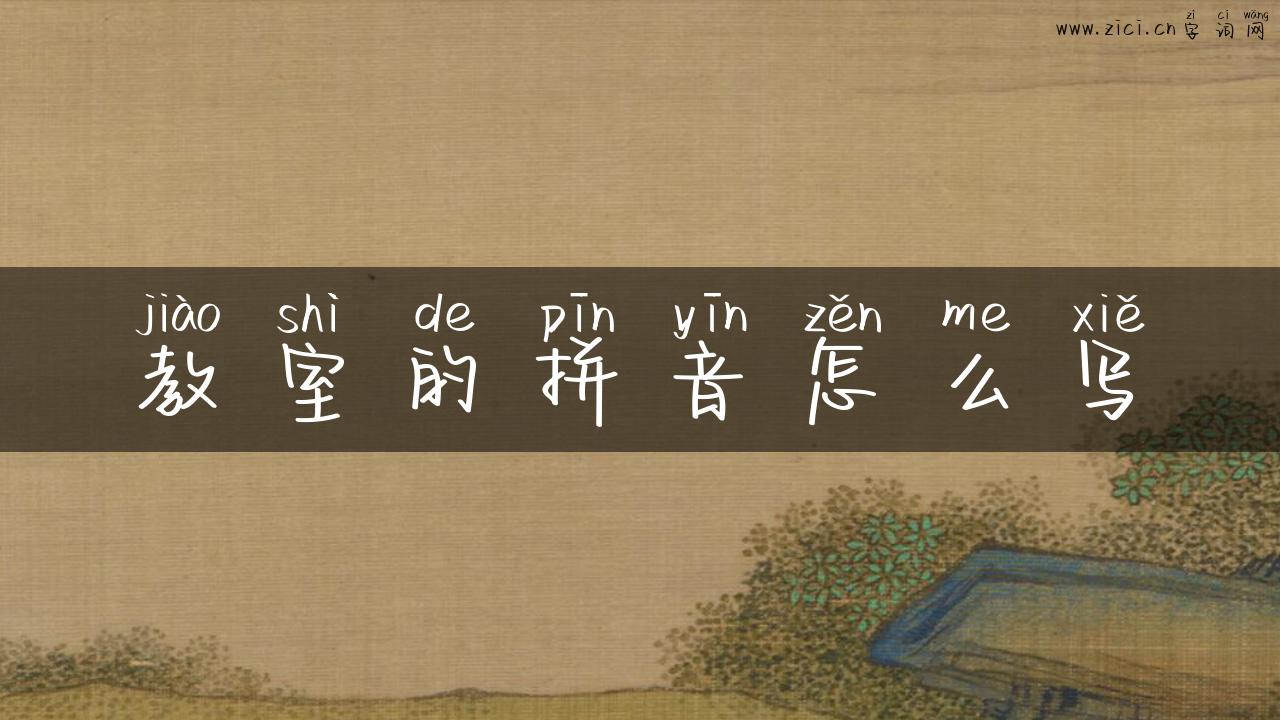 zì cí wǎng
www.zici.cn 字 词 网
jiào shì de pīn yīn zěn me xiě
教 室 的 拼 音 怎 么 写